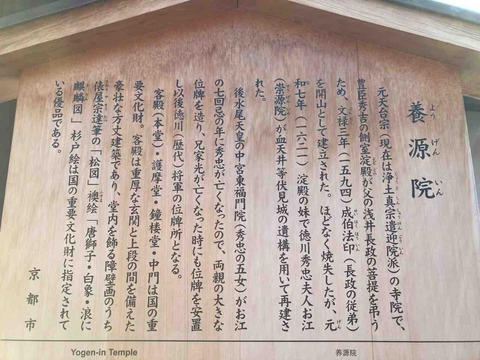 養源院
よう げん いん
元天台宗（現在は浄土真宗遣迎院派）の寺院で、
豊臣秀吉の側室淀殿が父の浅井長政の菩提を弔う
ため、文禄三年（一五九四）成伯法印（長政の従弟）
を開山として建立された。ほどなく焼失したが、元
和七年（一六二一）淀殿の妹で徳川秀忠夫人お江
（崇源院）が血天井等伏見城の遺構を用いて再建さ
れた。
後水尾天皇の中宮東福門院（秀忠の五女）がお江
の七回忌の年に秀忠が亡くなったので、両親の大きな
位牌を造り、兄家光が亡くなった時にも位牌を安置
し以後徳川（歴代）将軍の位牌所となる。
客殿（本堂）・護摩堂・鐘楼堂・中門は国の重
要文化財。客殿は重厚な玄関と上段の間を備えた
豪壮な方丈建築であり、堂内を飾る障壁画のうち
俵屋宗達筆の「松図」襖絵・「唐獅子・白象・浪に
麒麟図」杉戸絵は国の重要文化財に指定されて
いる優品である。
京都市
Yogen-in Temple
养源院